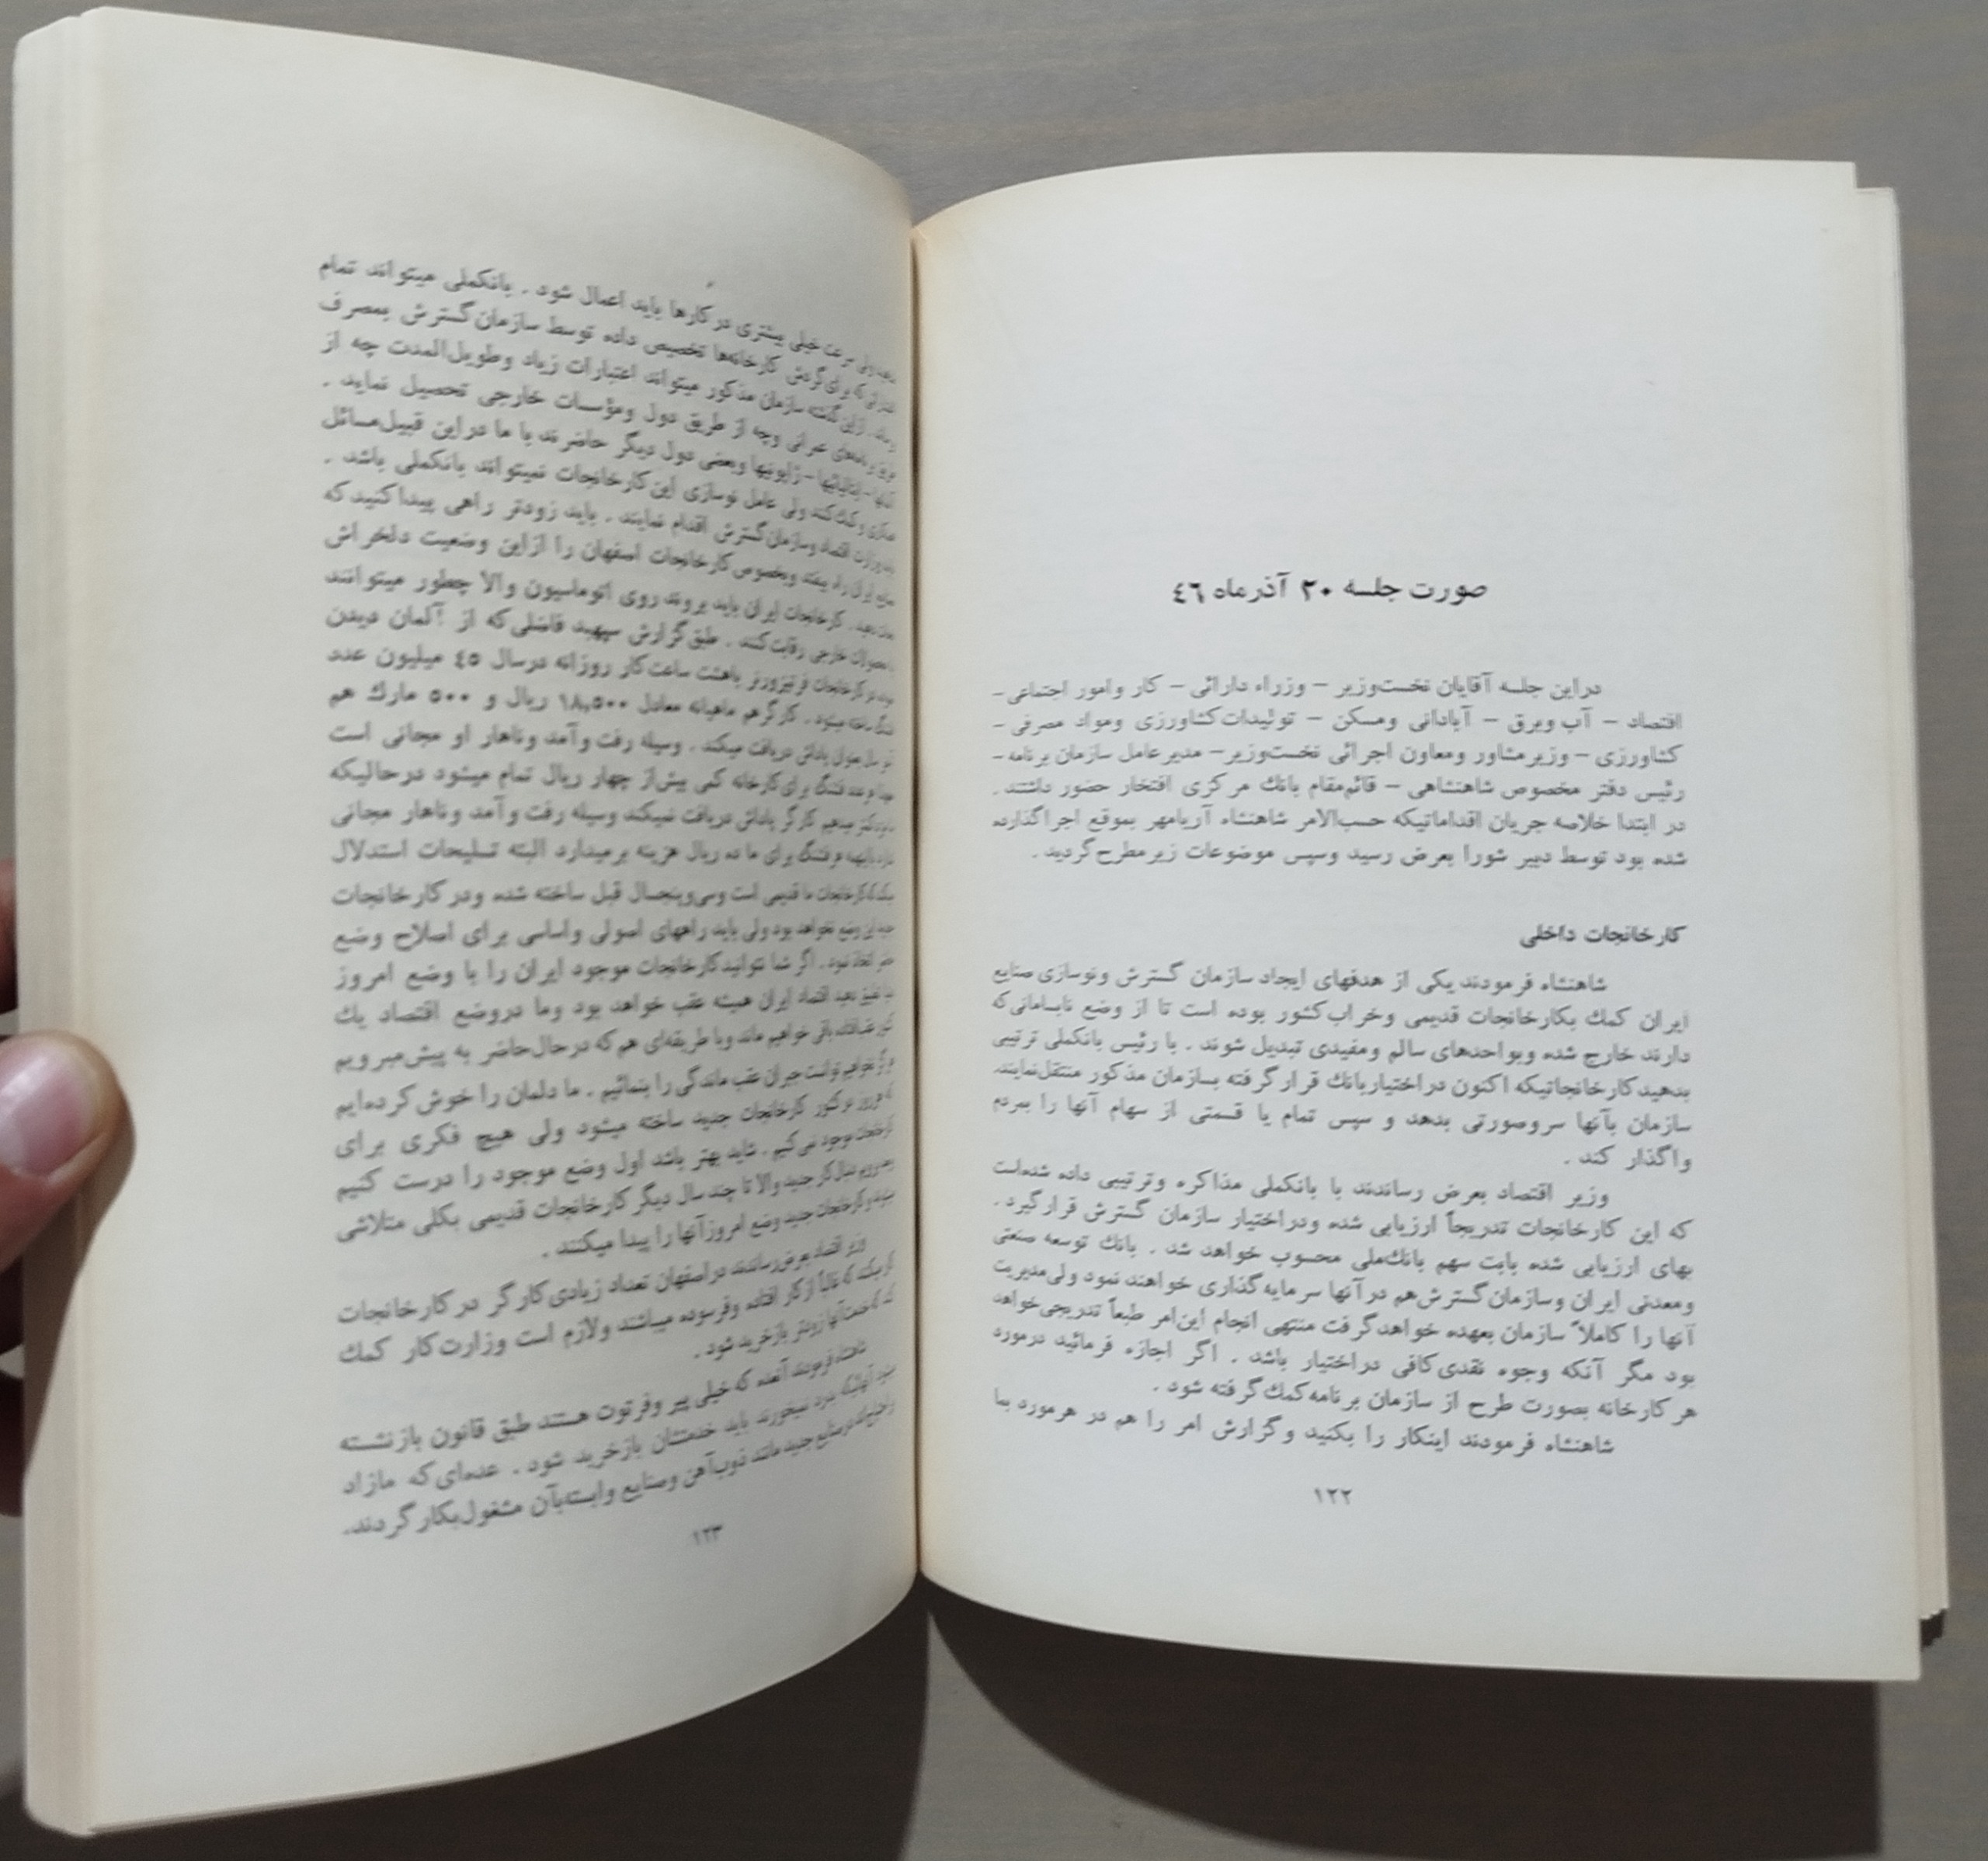 صورت جلسه ۲۰ آذرماه ٤٦
دراین جلسه آقایان نخست‌وزیر – وزراء دارائی – کار وامور اجتماعی –
اقتصاد – آب وبرق – آبادانی ومسکن – تولیدات‌کشاورزی ومواد مصرفی –
کشاورزی – وزیرمشاور ومعاون اجرائی نخست‌وزیر – مدیرعامل سازمان برنامه –
رئیس دفتر مخصوص شاهنشاهی – قائم‌مقام بانك مرکزی افتخار حضور داشتند .
در ابتدا خلاصه جریان اقداماتیکه حسب‌الامر شاهنشاه آریامهر بموقع اجراگذارده
شده بود توسط دبیر شورا بعرض رسید وسپس موضوعات زیرمطرح‌گردید .
کارخانجات داخلی
شاهنشاه فرمودند یکی از هدفهای ایجاد سازمان گسترش ونوسازی صنایع
ایران کمك بکارخانجات قدیمی وخراب‌کشور بوده است تا از وضع نابسامانی‌که
دارند خارج شده وبواحدهای سالم ومفیدی تبدیل شوند . با رئیس بانکملی ترتیبی
بدهیدکارخانجاتیکه اکنون دراختیاربانك قرارگرفته بسازمان مذکور منتقل‌نمایند.
سازمان بآنها سروصورتی بدهد و سپس تمام یا قسمتی از سهام آنها را بمردم
واگذار کند .
وزیر اقتصاد بعرض رساندند با بانکملی مذاکره وترتیبی داده شده‌است
که این کارخانجات تدریجاً ارزیابی شده ودراختیار سازمان گسترش قرارگیرد .
بهای ارزیابی شده بابت سهم بانك‌ملی محسوب خواهد شد . بانك توسعه صنعتی
ومعدنی ایران وسازمان‌گسترش‌هم درآنها سرمایه‌گذاری خواهند نمود ولی‌مدیریت
آنها را کاملاً سازمان بعهده خواهدگرفت منتهی انجام این‌امر طبعاً تدریجی‌خواهد
بود مگر آنکه وجوه نقدی‌کافی دراختیار باشد . اگر اجازه فرمائید درمورد
هرکارخانه بصورت طرح از سازمان برنامه‌کمك‌گرفته شود .
شاهنشاه فرمودند اینکار را بکنید وگزارش امر را هم در هرمورد بما
۱۲۲
ولی سرعت خیلی بیشتری درکارها باید اعمال شود . بانکملی میتواند تمام
که برای‌گردش کارخانه‌ها تخصیص داده توسط سازمان‌گسترش بمصرف
ازاین گذشته سازمان مذکور میتواند اعتبارات زیاد وطویل‌المدت چه از
عمرانی وچه از طریق دول ومؤسسات خارجی تحصیل نماید .
ایتالیائیها – ژاپونیها وبعضی دول دیگر حاضرند با ما دراین قبیل‌مسائل
وکمك‌کنند ولی عامل نوسازی این‌کارخانجات نمیتواند بانکملی باشد .
وزارت اقتصاد وسازمان‌گسترش اقدام نمایند . باید زودتر راهی پیداکنیدکه
ایران راه بیفتد وبخصوص کارخانجات اصفهان را ازاین وضعیت دلخراش
کارخانجات ایران باید بروند روی اتوماسیون والا چطور میتوانند
خارجی رقابت‌کنند . طبق‌گزارش سپهبد فاضلی‌که از آلمان دیدن
کارخانجات باهشت ساعت‌کار روزانه درسال ٤٥ میلیون عدد
ساخته میشود . کارگرهم ماهیانه معادل ۱۸٫۵۰۰ ریال و ۵۰۰ مارك هم
بعنوان پاداش دریافت میکند . وسیله رفت وآمد وناهار او مجانی است
عدد فشنگ برای‌کارخانه کمی بیش‌از چهار ریال تمام میشود درحالیکه
میدهیم کارگر پاداش دریافت نمیکند وسیله رفت وآمد وناهار مجانی
فشنگ برای ما ده ریال هزینه برمیدارد البته تسلیحات استدلال
کارخانجات ما قدیمی است وسی‌وپنجسال قبل ساخته شده ودرکارخانجات
این وضع نخواهد بود ولی باید راههای اصولی واساسی برای اصلاح وضع
اتخاذ نمود . اگر شما نتوانیدکارخانجات موجود ایران را با وضع امروز
تطبیق دهید اقتصاد ایران همیشه عقب خواهد بود وما دروضع اقتصاد یك
باقی خواهیم ماند وبا طریقه‌ای هم‌که درحال‌حاضر به پیش‌میرویم
نخواهیم توانست جبران عقب‌ماندگی را بنمائیم . ما دلمان را خوش‌کرده‌ایم
که هرروز درکشور کارخانجات جدید ساخته میشود ولی هیچ فکری برای
کارخانجات موجود نمی‌کنیم . شاید بهتر باشد اول وضع موجود را درست کنیم
دنبال‌کار جدید والا تا چند سال دیگر کارخانجات قدیمی بکلی متلاشی
وکارخانجات جدید وضع امروزآنها را پیدا میکنند .
وزیر اقتصاد بعرض‌رساندند دراصفهان تعداد زیادی‌کارگر درکارخانجات
کار میکنند که غالباً ازکار افتاده وفرسوده میباشند ولازم است وزارت‌کار کمك
کند که خدمت آنها زودتر بازخرید شود .
شاهنشاه فرمودند آنعده که خیلی پیر وفرتوت هستند طبق قانون بازنشسته
بدرد نمیخورند باید خدمتشان بازخرید شود . عده‌ای‌که مازاد
درصنایع جدید مانند ذوب‌آهن وصنایع وابسته‌بآن مشغول‌بکارگردند.
۱۲۳